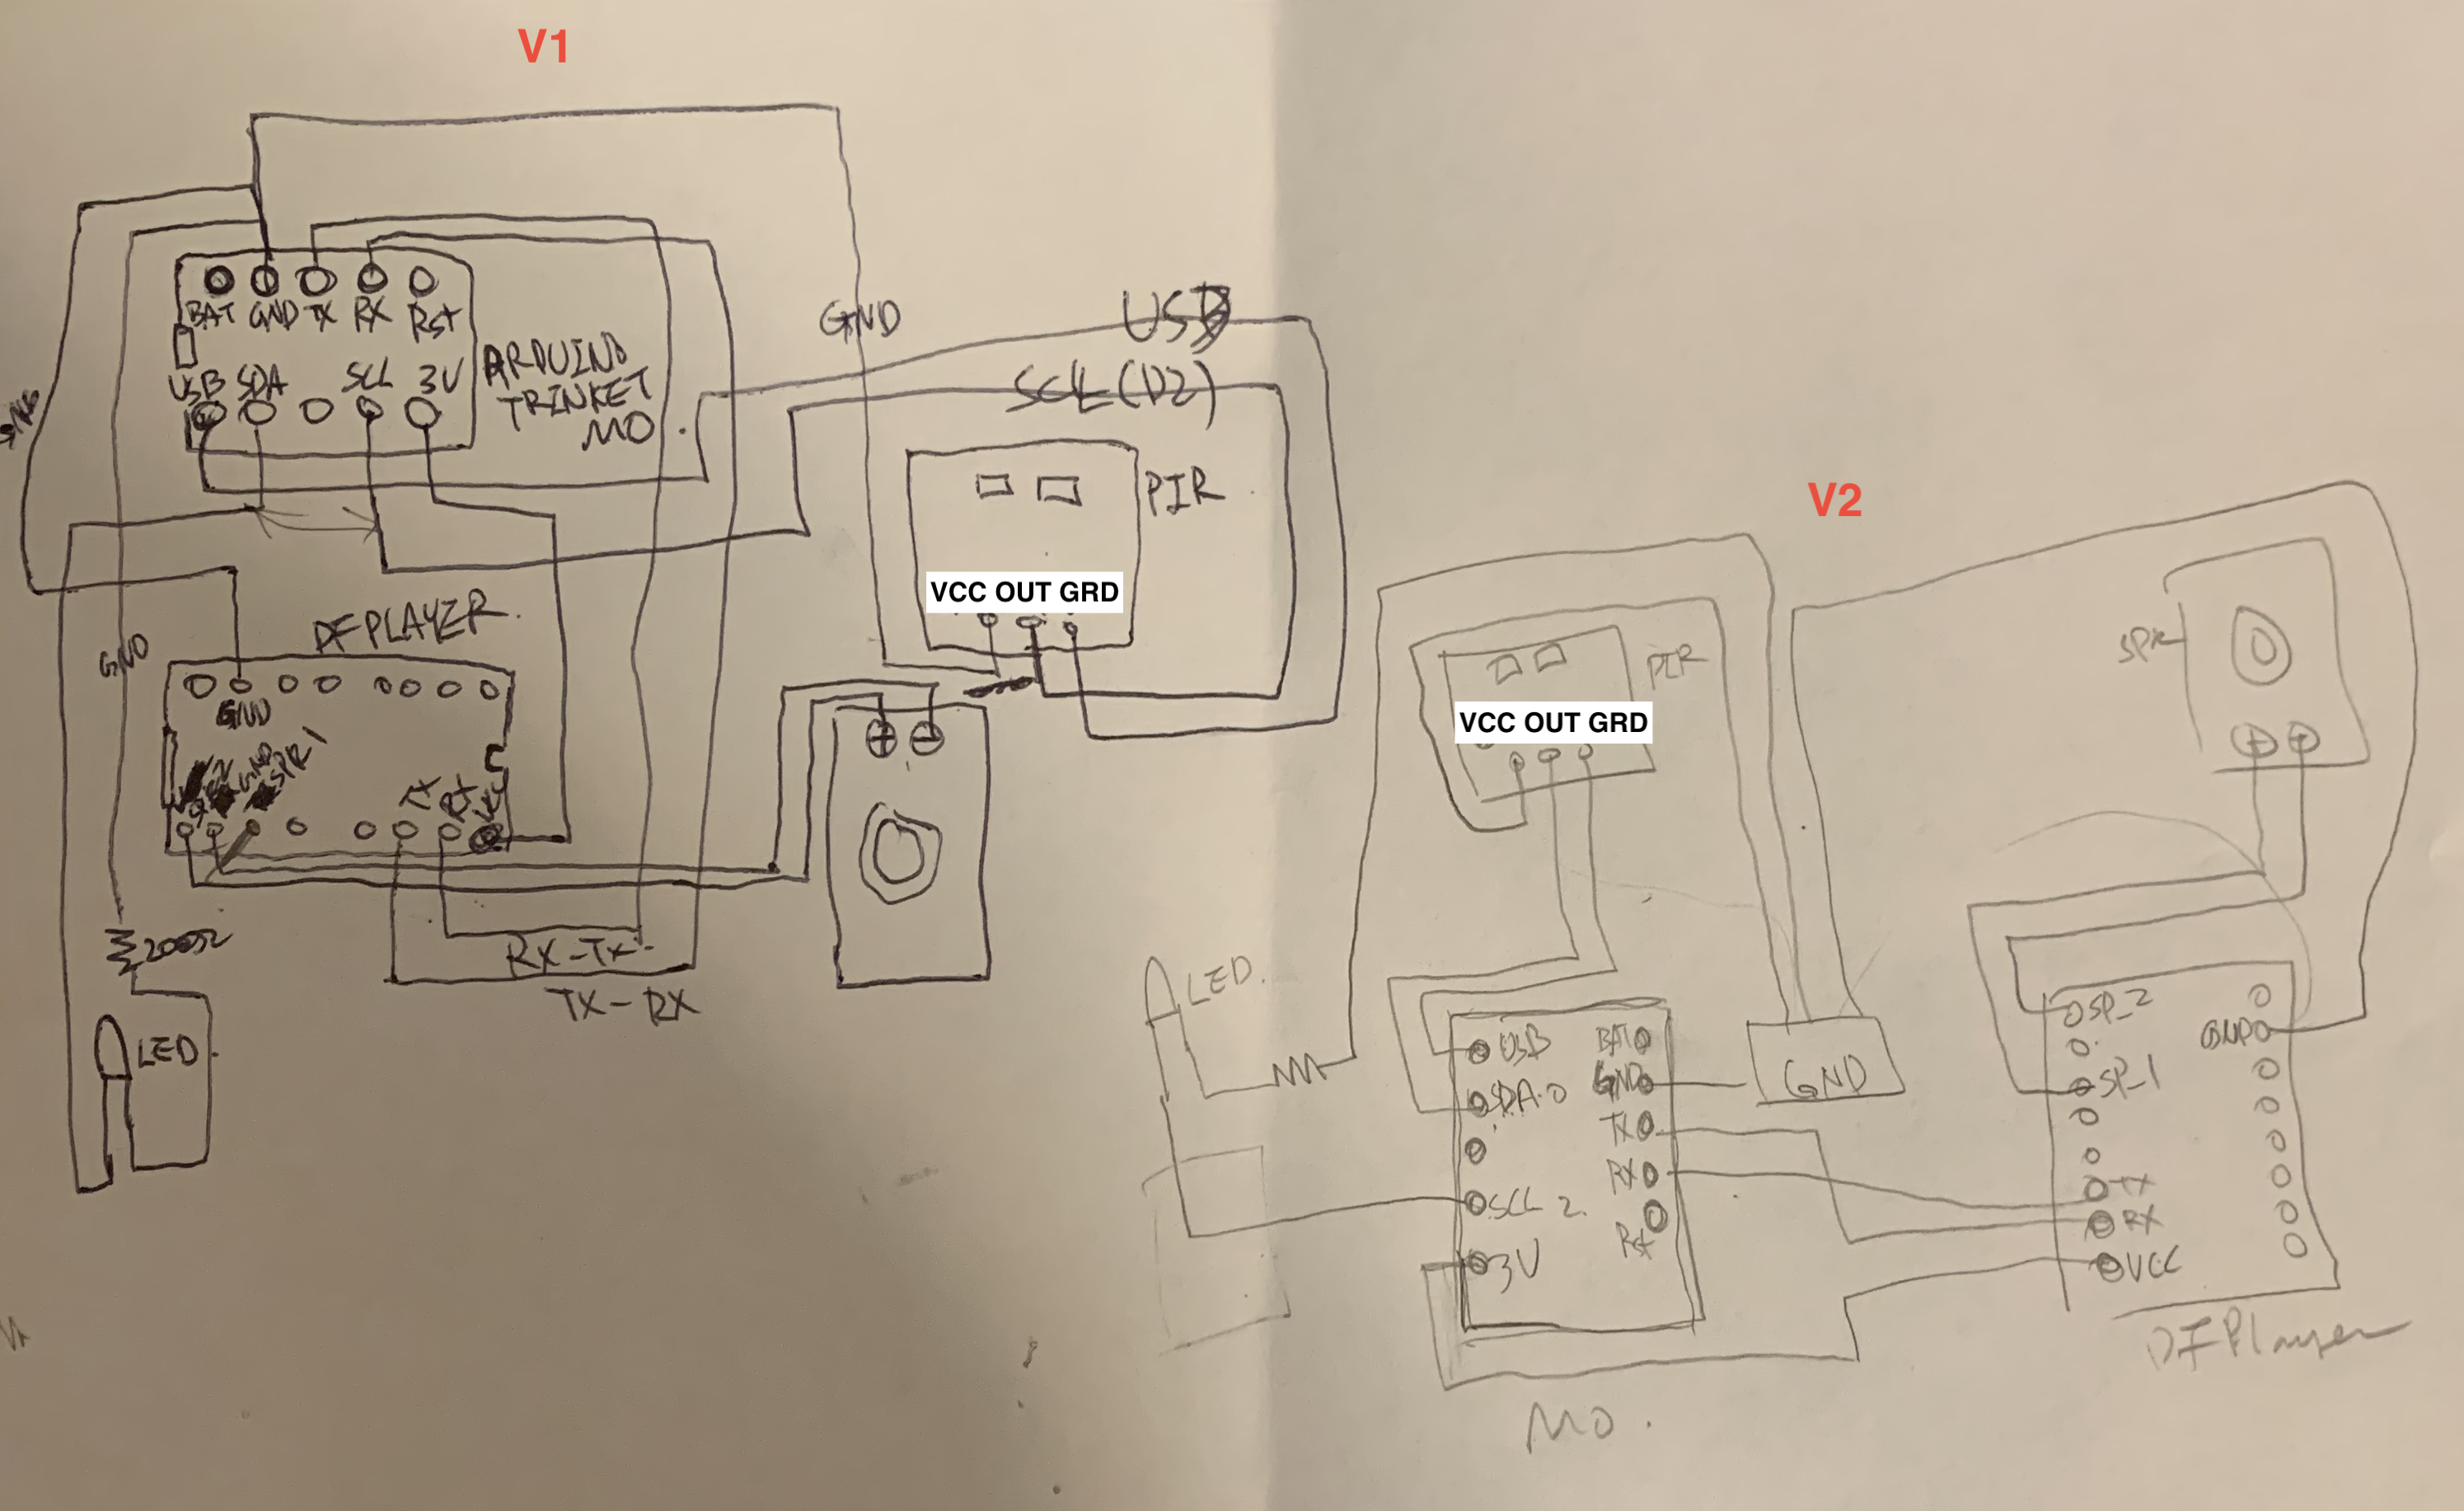 V1
BAT GND TX RX Rst
USB SDA SCL 3V
ARDUINO
TRINKET
MO
GND
USB
SCL (D2)
PIR
VCC OUT GRD
GND
DFPLAYER.
GND
GND
SPR1
TX RX
200Ω
RX-TX
TX-RX
LED
V2
PIR
VCC OUT GRD
SPK
LED.
USB BAT
SDA.0 GND
TX
RX
SCL 2.
Rst
3V
GND
SP_2
GND
SP_1
TX
RX
VCC
DFPlayer
MO.